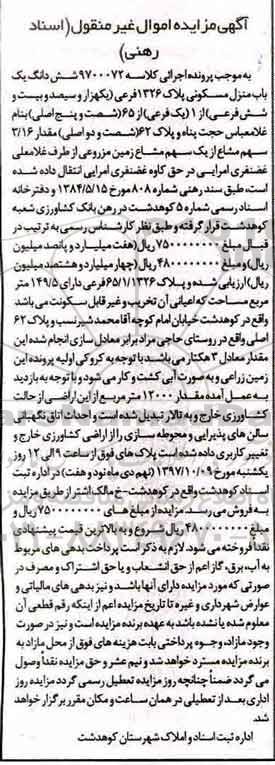 آگهی مزایده اموال غیر منقول (اسناد
رهنی)
به موجب پرونده اجرائی کلاسه ۹۷۰۰۰۷۲ شش دانگ یک
باب منزل مسکونی پلاک ۱۳۲۶ فرعی (یکهزار و سیصد و بیست و
شش فرعی) از ۱ (یک فرعی) از ۶۵ (شصت و پنج اصلی) بنام
غلامعباس حجت پناه و پلاک ۶۲ (شصت و دو اصلی) مقدار ۳/۱۶
سهم مشاع از یک سهم مشاع زمین مزروعی از طرف غلامعلی
غضنفری امرایی در حق کاوه غضنفری امرایی انتقال داده شده
است، طبق سند رهنی شماره ۸۰۸ مورخ ۱۳۸۴/۵/۱۵ و دفترخانه
اسناد رسمی شماره ۵ کوهدشت در رهن بانک کشاورزی شعبه
کوهدشت قرار گرفته و طبق نظر کارشناس رسمی به ترتیب در
قبال مبلغ ۷۵۰۰۰۰۰۰۰۰ ریال (هفت میلیارد و پانصد میلیون
ریال) و مبلغ ۴۸۰۰۰۰۰۰۰۰ ریال (چهار میلیارد و هشتصد میلیون
ریال) ارزیابی شده و پلاک ۶۵/۱/۱۳۲۶ فرعی دارای ۱۴۹/۵ متر
مربع مساحت که اعیانی آن تخریب و غیر قابل سکونت می باشد
واقع در کوهدشت خیابان امام کوچه آقا محمد شیرنسب و پلاک ۶۲
اصلی واقع در روستای حاجی مراد برابر معادل سازی انجام شده این
مقدار معادل ۳ هکتار می باشد با توجه به کروکی اولیه پرونده این
زمین زراعی و به صورت آبی کشت و کار می شود و با توجه به بازدید
به عمل آمده مقدار ۱۲۰۰۰ متر مربع از این اراضی از حالت
کشاورزی خارج و به تالار تبدیل شده است و احداث اتاق نگهبانی
سالن های پذیرایی و محوطه سازی را از اراضی کشاورزی خارج و
تغییر کاربری داده شده است پلاک های فوق از ساعت ۹ الی ۱۲ روز
یکشنبه مورخ ۱۳۹۷/۱۰/۰۹ (نهم دی ماه نود و هفت) در اداره ثبت
اسناد کوهدشت واقع در کوهدشت - خ مالک اشتر از طریق مزایده
به فروش می رسد. مزایده از مبلغ های ۷۵۰۰۰۰۰۰۰۰ ریال و
مبلغ ۴۸۰۰۰۰۰۰۰۰ ریال شروع و به بالاترین قیمت پیشنهادی
نقدا فروخته می شود. لازم به ذکر است پرداخت بدهی های مربوط
به آب، برق، گاز اعم از حق انشعاب و یا حق اشتراک و مصرف در
صورتی که مورد مزایده دارای آنها باشد و نیز بدهی های مالیاتی و
عوارض شهرداری و غیره تا تاریخ مزایده اعم از اینکه رقم قطعی آن
معلوم شده یا نشده باشد به عهده برنده مزایده است و نیز در صورت
وجود مازاد، وجوه پرداختی بابت هزینه های فوق از محل مازاد به
برنده مزایده مسترد خواهد شد و نیم عشر و حق مزایده نقداً وصول
می گردد ضمناً چنانچه روز مزایده تعطیل رسمی گردد مزایده روز
اداری بعد از تعطیلی در همان ساعت و مکان مقرر برگزار خواهد
شد.
اداره ثبت اسناد و املاک شهرستان کوهدشت